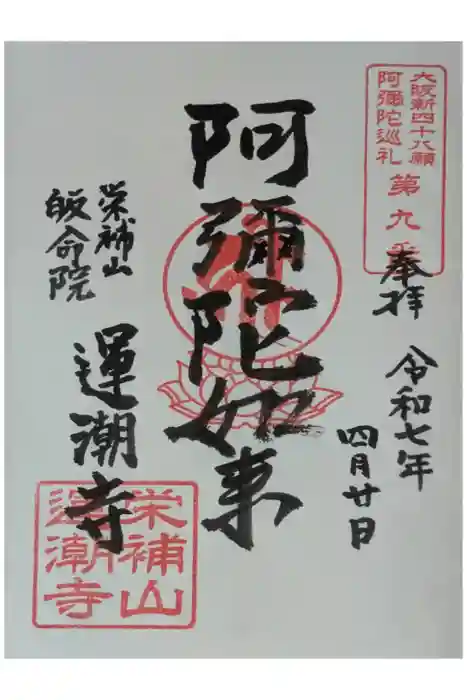 大阪新四十八願
阿彌陀巡礼
第九番
奉拝
令和七年
四月廿日
阿彌陀如来
栄補山
皈命院
運潮寺
栄補山
運潮寺